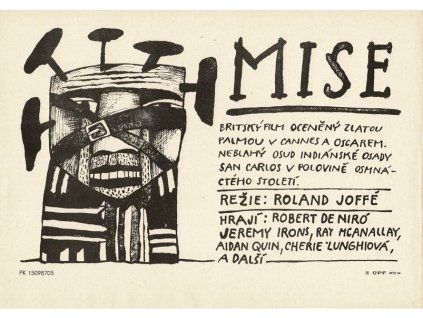 MISE
BRITSKÝ FILM OCENĚNÝ ZLATOU
PALMOU V CANNES A OSCAREM.
NEBLAHÝ OSUD INDIÁNSKÉ OSADY
SAN CARLOS V POLOVINĚ OSMNÁ-
CTÉHO STOLETÍ.
REŽIE: ROLAND JOFFÉ
HRAJÍ: ROBERT DE NIRO
JEREMY IRONS, RAY MCANALLAY,
AIDAN QUIN, CHERIE LUNGHIOVÁ,
A DALŠÍ
PK 15098705
ÚPF